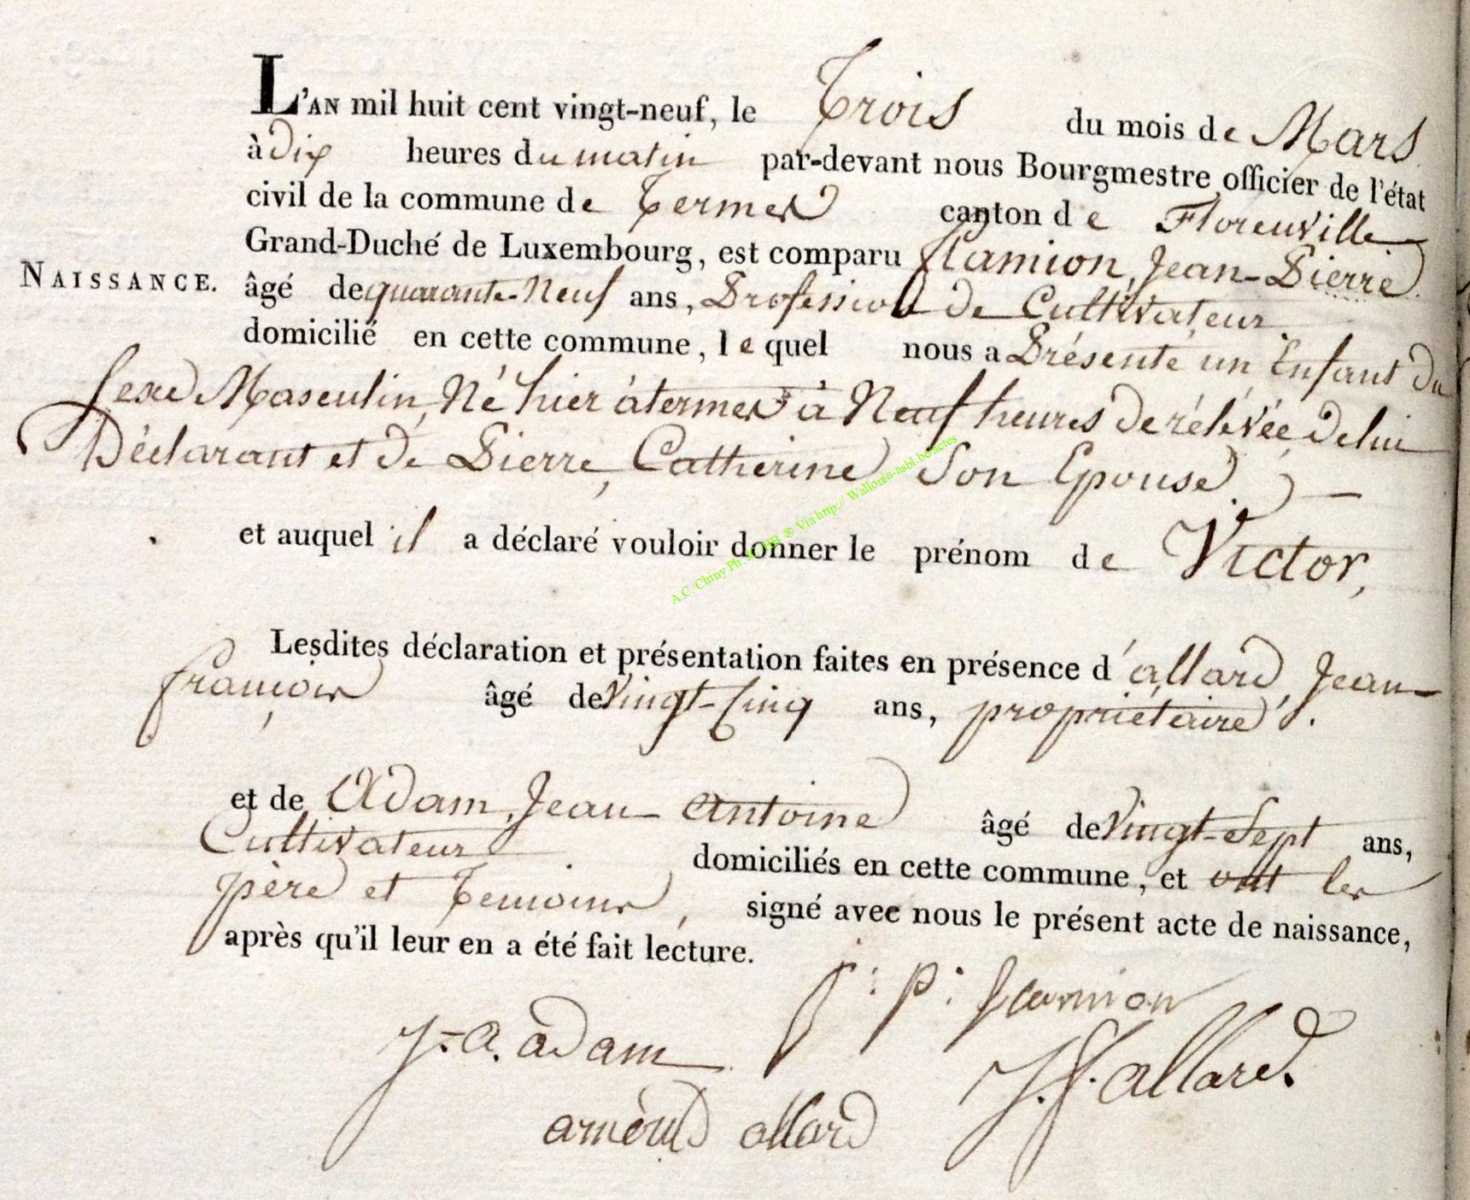 L'AN mil huit cent vingt-neuf, le Trois du mois de Mars
à dix heures du matin par-devant nous Bourgmestre officier de l'état
civil de la commune de Termes canton de Florenville
Grand-Duché de Luxembourg, est comparu flamion, Jean-Pierre
NAISSANCE.
âgé de quarante-Neuf ans, Profession de Cultivateur
domicilié en cette commune, lequel nous a Présenté un Enfant du
sexe Masculin, Né hier à termes à Neuf heures de rélévée, de lui
Déclarant et de Pierre, Catherine Son Epouse
et auquel il a déclaré vouloir donner le prénom de Victor,
Lesdites déclaration et présentation faites en présence d'allard, Jean-
françois âgé de Vingt-Cinq ans, propriétaire.
et de Adam, Jean-Antoine âgé de Vingt-Sept ans,
Cultivateur domiciliés en cette commune, et ont les
père et Temoins, signé avec nous le présent acte de naissance,
après qu'il leur en a été fait lecture.
j: p: flamion
J.-a. adam
J. f. allard.
arnould allard
A.C. Chiny Ph. ® Via http:/ Wallonia-asbl.be/actes